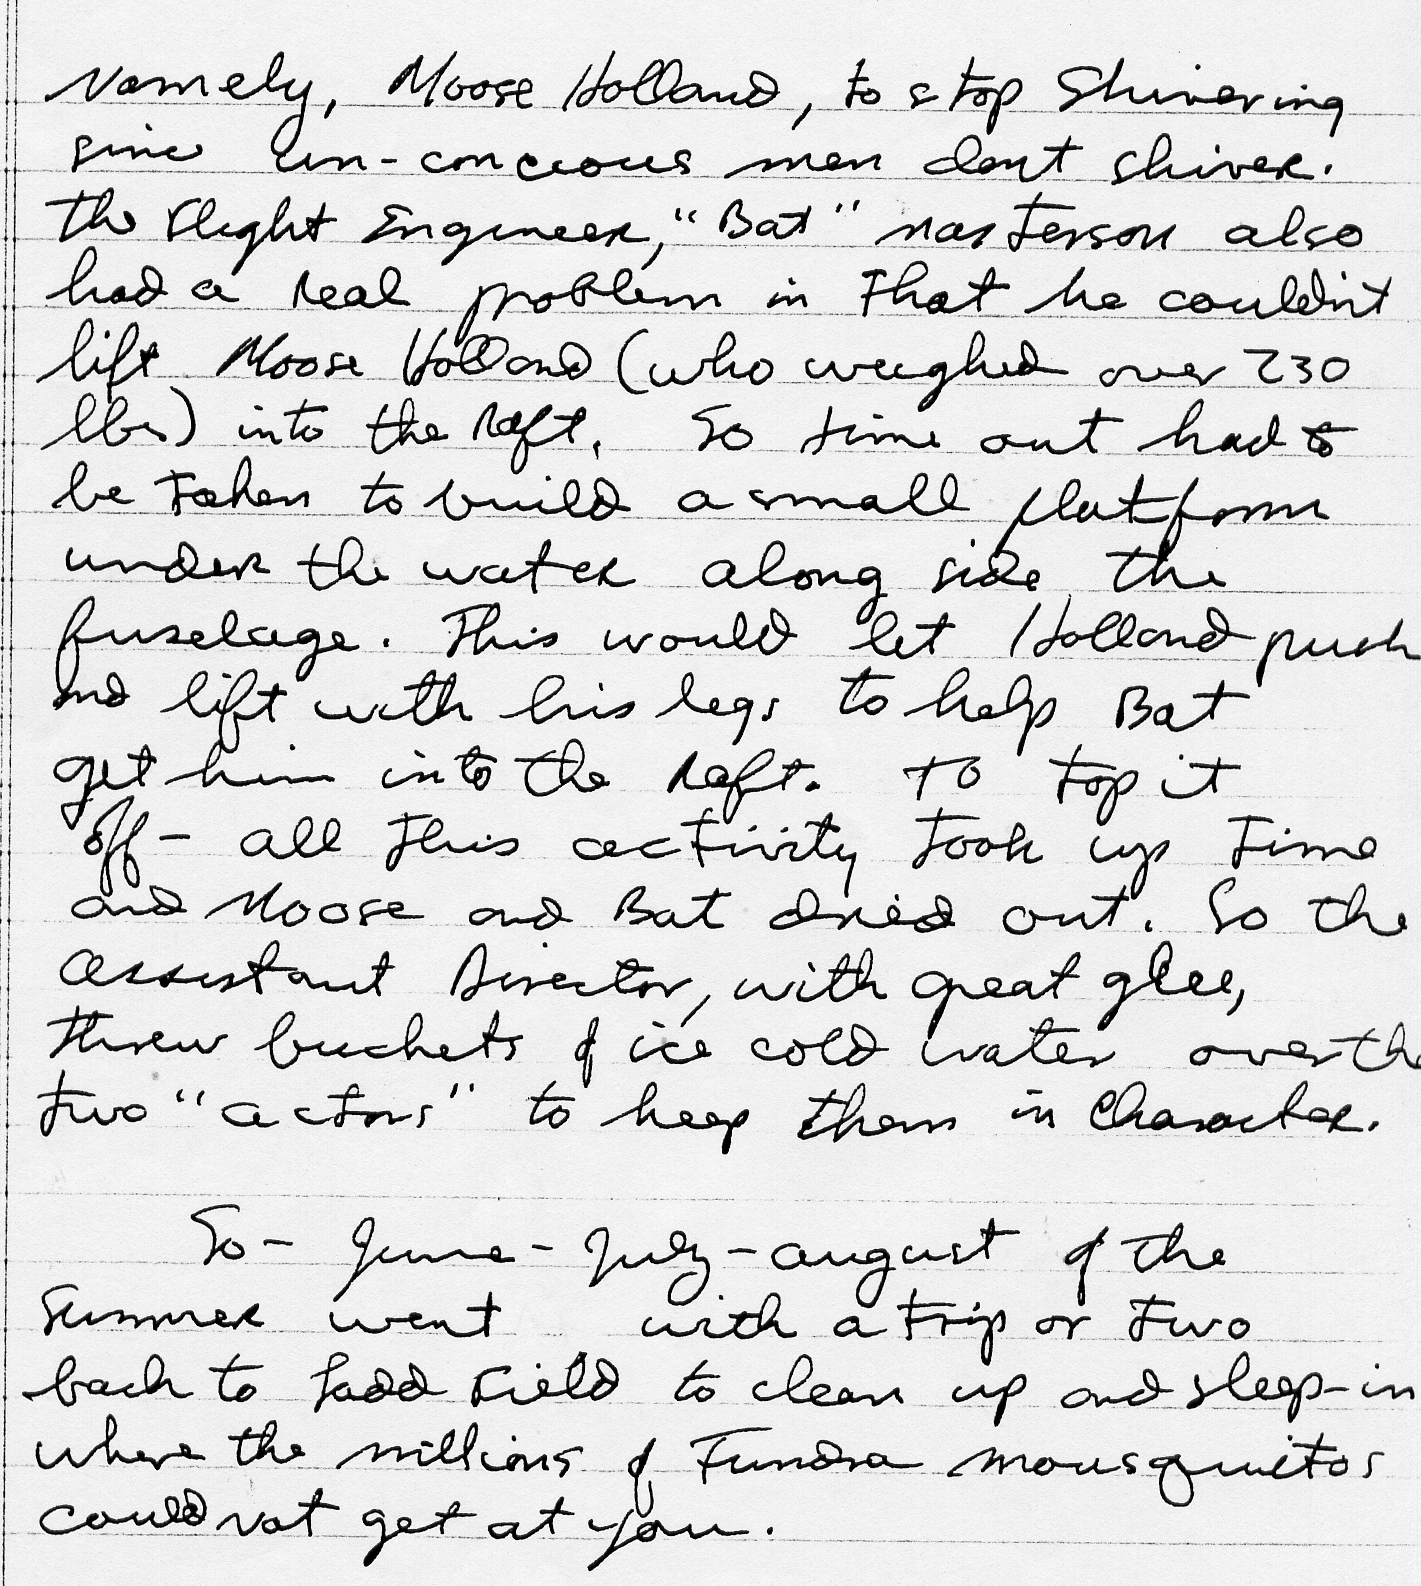 Namely, Moose Holland, to stop shivering
since un-concious men dont shiver.
The Flight Engineer, "Bat" Masterson also
had a real problem in that he couldn't
lift Moose Holland (who weighed over 230
lbs) into the raft. So time out had to
be taken to build a small platform
under the water along side the
fuselage. This would let Holland push
and lift with his legs to help Bat
get him into the raft. To top it
off - all this activity took up time
and Moose and Bat dried out. So the
Assistant Director, with great glee,
threw buckets of ice cold water over the
two "actors" to keep them in character.
So - June - July - August of the
summer went with a trip or two
back to Ladd Field to clean up and sleep-in
where the millions of Tundra mousquitos
could not get at you.